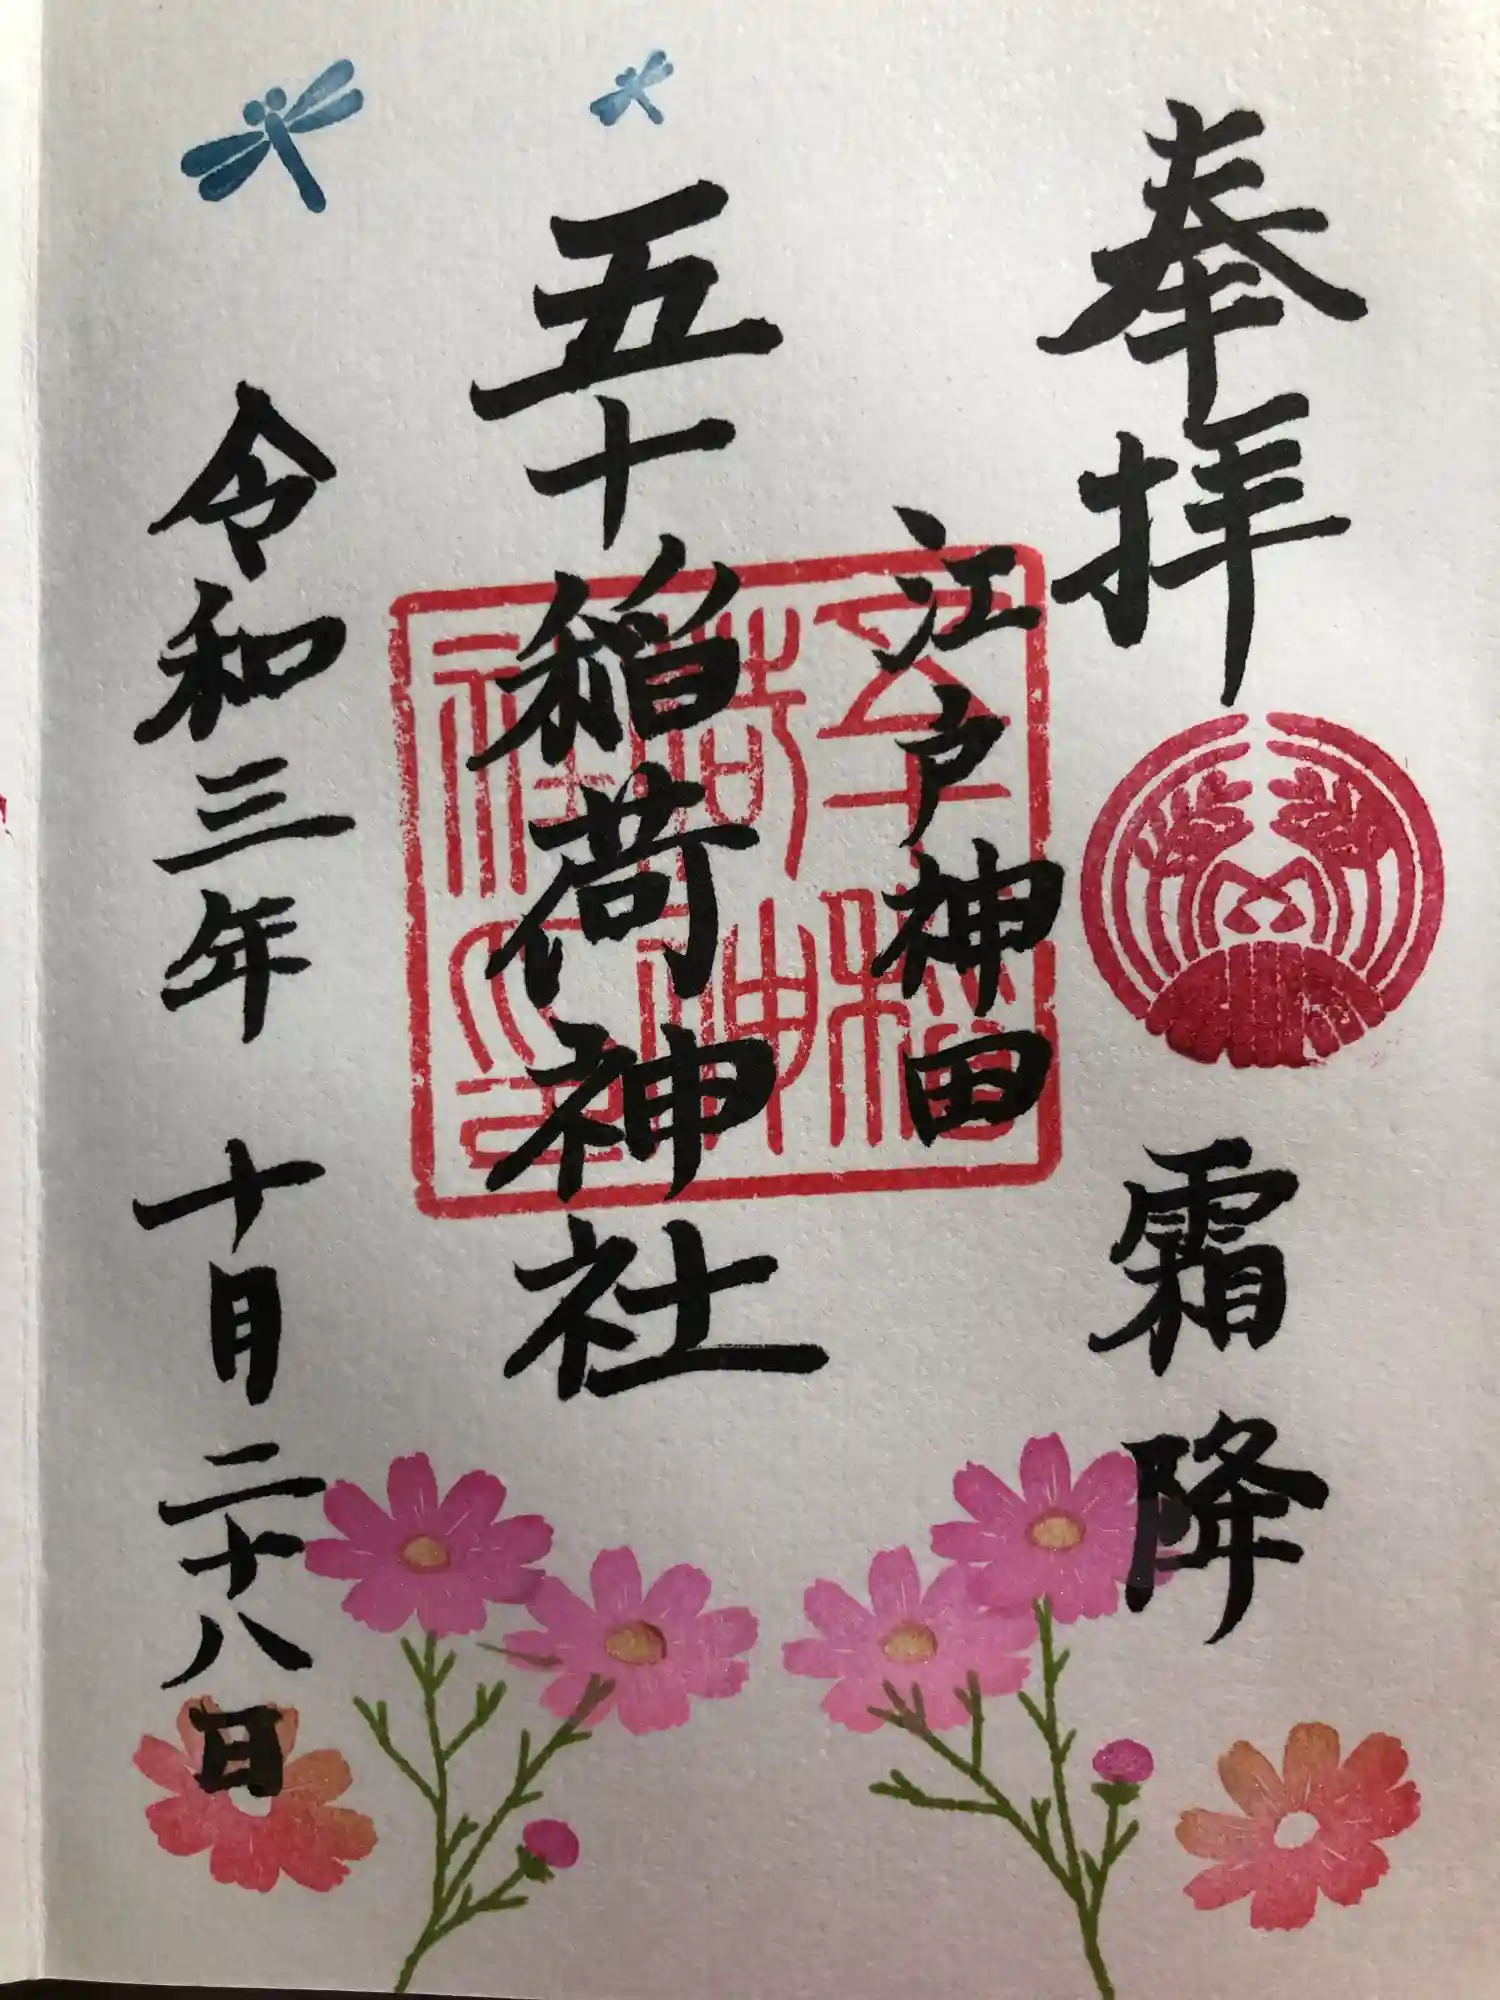 奉拝
霜降
江戸神田
五十稲荷神社
五十稲荷神社印
令和三年 十月二十八日